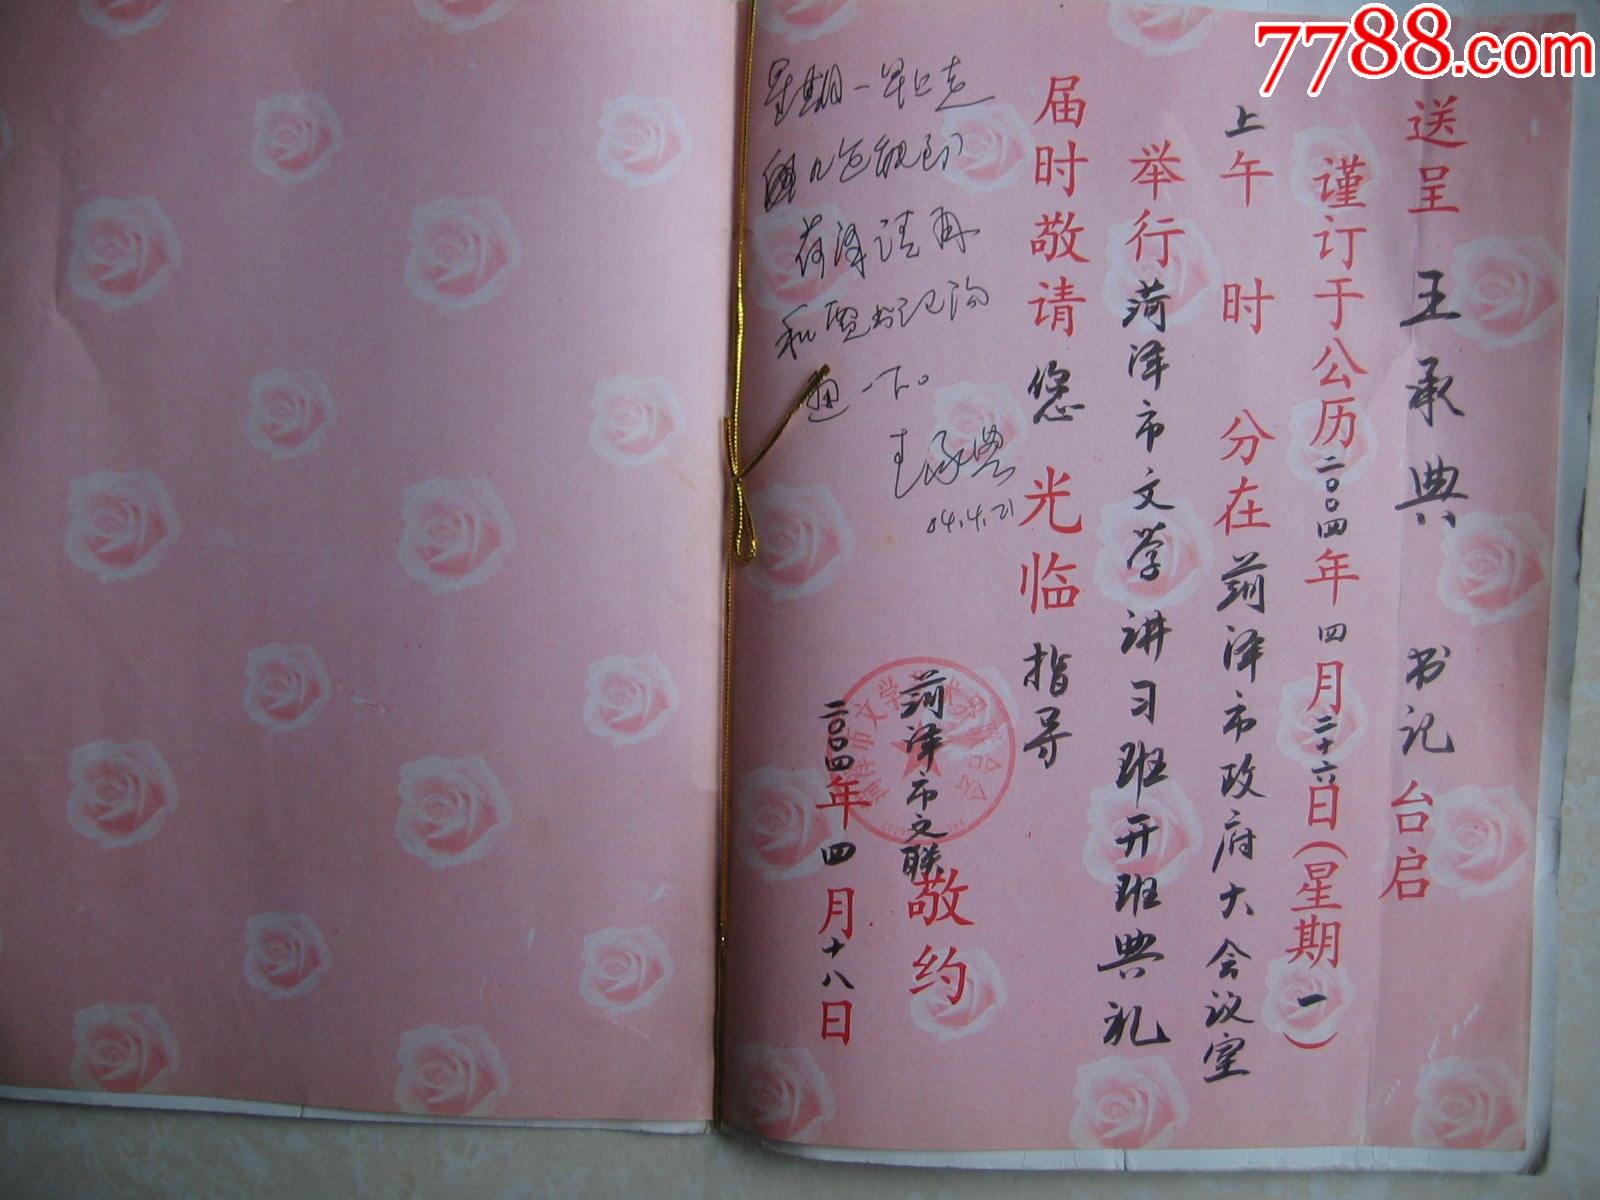 7788.com
送呈 王承典 书记 台启
谨订于公历二〇〇四年四月二十六日(星期一)
上午 时 分在菏泽市政府大会议室
举行菏泽市文学讲习班开班典礼
届时敬请 您 光临 指导
菏泽市文联 敬约
二〇〇四年四月十八日
星期一早上
荷泽请再
和贾书记沟
通一下。
王承典
04.4.21